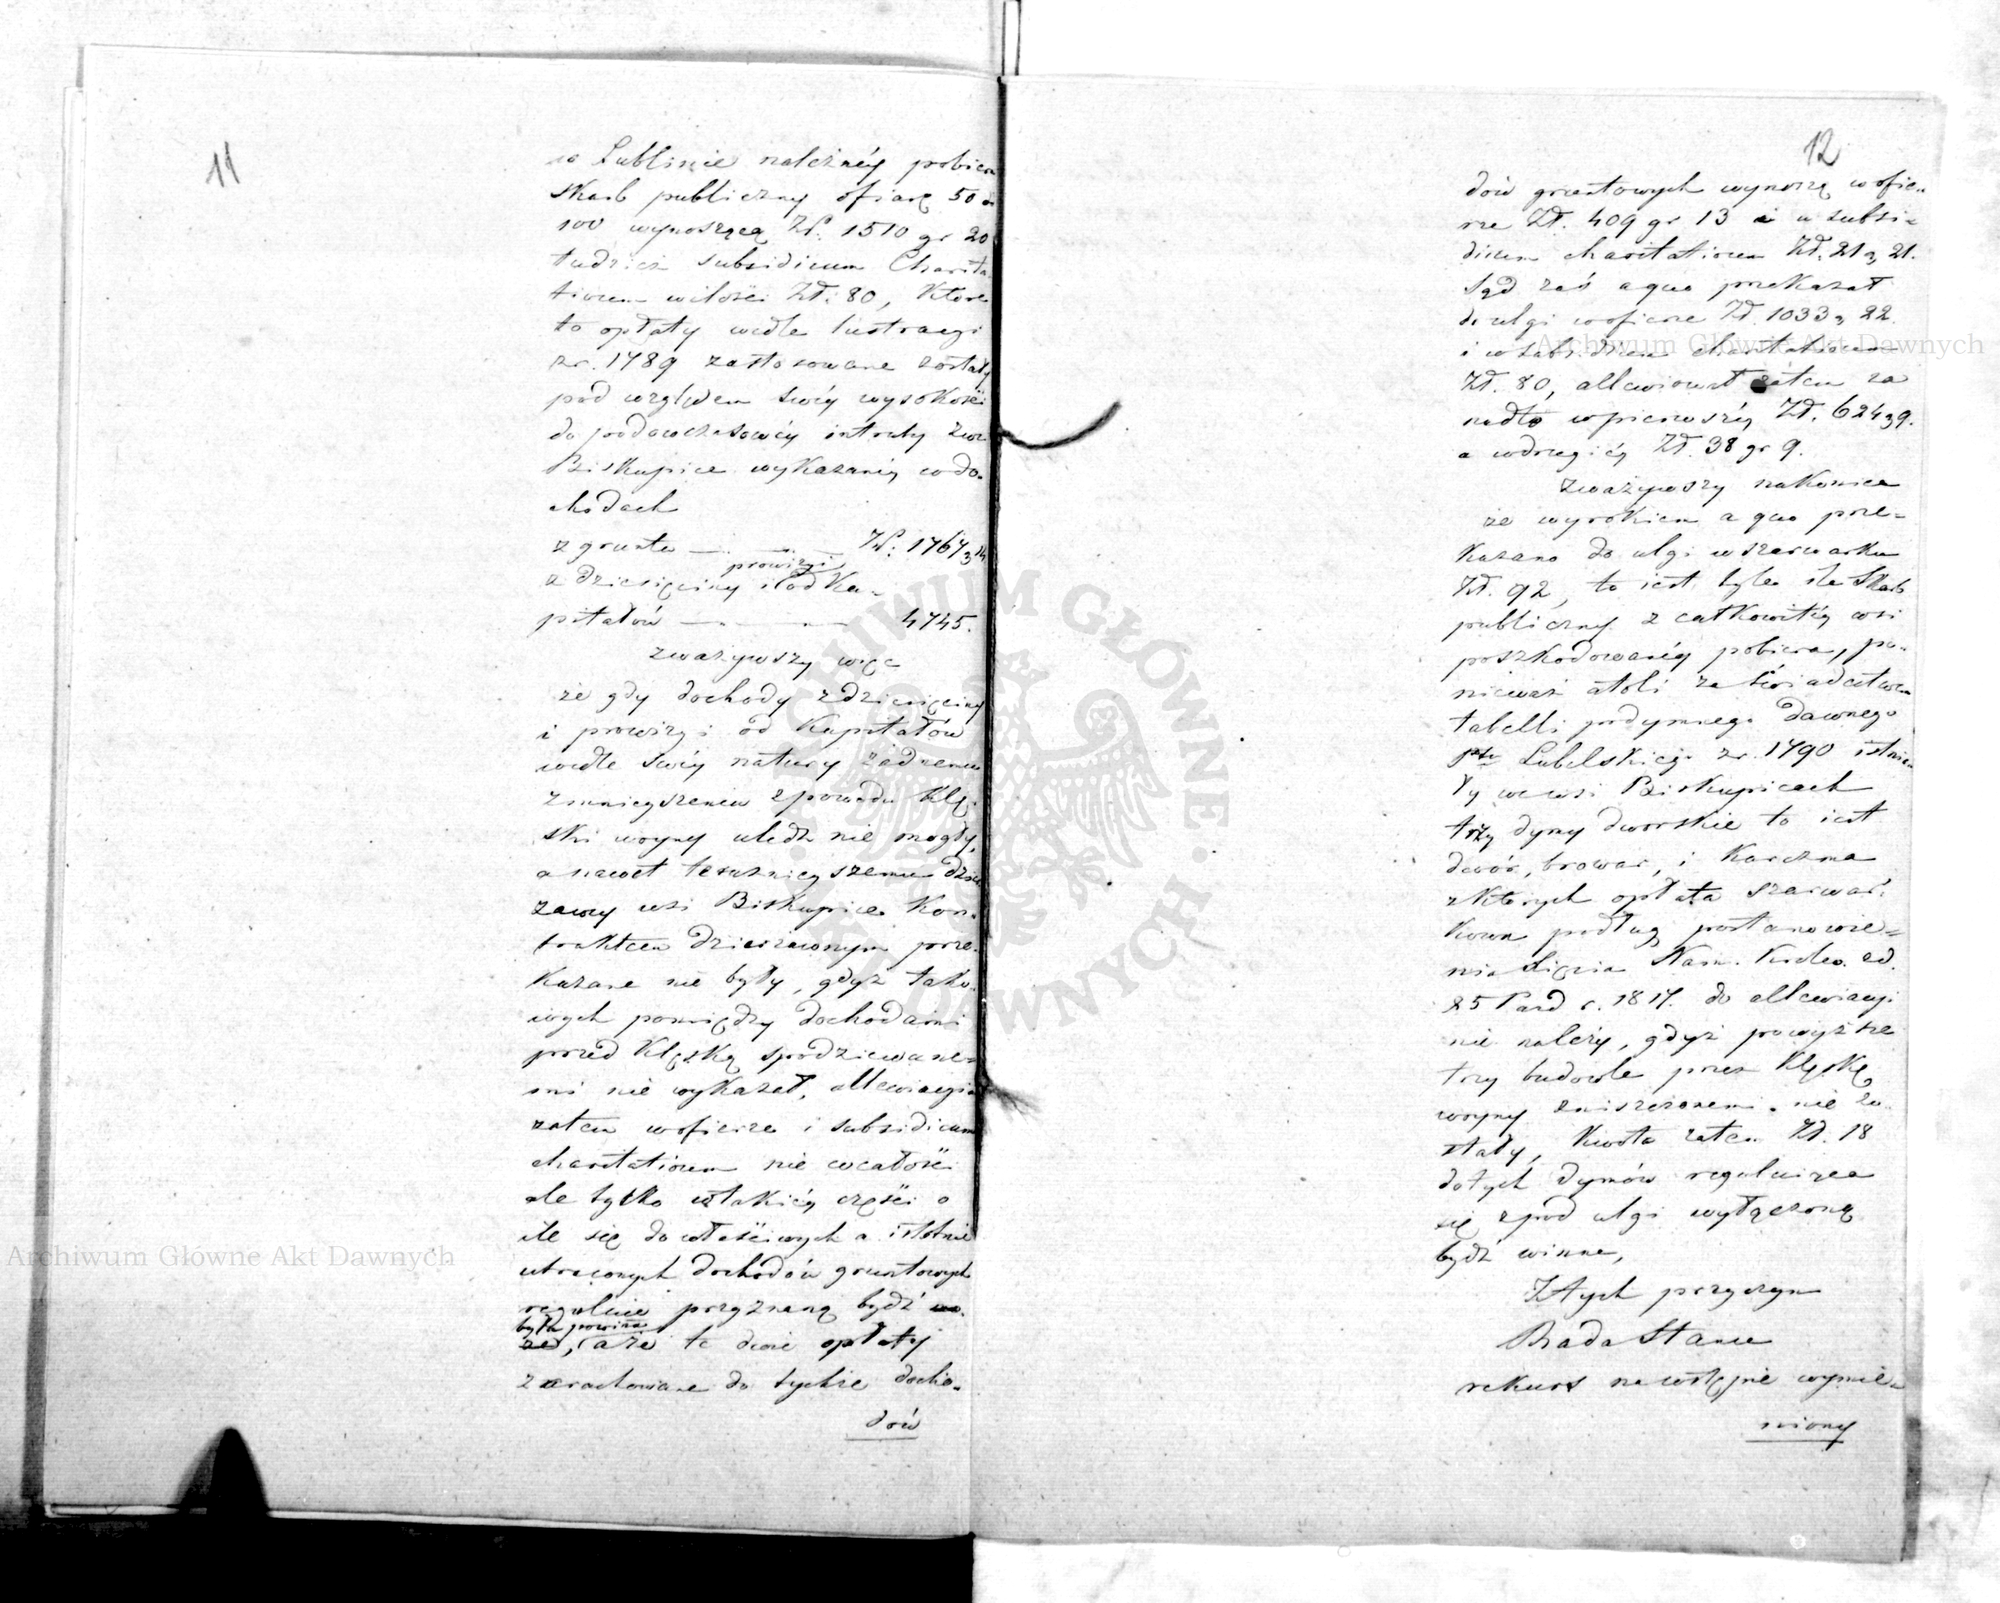 11
w Lublinie należnéy pobiera
Skarb publiczny ofiarę 50 od
100 wynoszącą Zł: 1510 gr 20
tudzież subsidium Charita
tivum w ilości Zł: 80, które
to opłaty wedle lustracyi
z r. 1789 zastosowane zostały
pod względem swéy wysokości
do podówczasowéy intraty z wsi
Biskupice wykazanéy w do-
chodach
z gruntu — Zł: 1767, 14
prowizyi
z dziesięciny i od Ka-
pitałów — 4745.
zważywszy więc
że gdy dochody z dziesięciny
i prowizyi od Kapitałów
wedle swéy natury żadnemu
zmnieyszeniu z powodu klę-
ski woyny uledz nie mogły,
a nawet teraznieyszemu dzier
żawcy wsi Biskupice kon-
traktem dzierżawnym prze-
kazane nie były, gdyż tako-
wych pomiędzy dochodami
przed klęską spodziewane-
mi nie wykazał, allewiacyia
zatem w ofierze i subsidium
charitativum nie w całości
ale tylko w takiéy części o
ile się do właściwych a istotnie
utraconych dochodów gruntowych
regulnie przyznaną bydź
była powinna
, a że te dwie opłaty
zarachowane do tychże docho-
dów
12
dów gruntowych wynoszą w ofie-
rze Zł. 409 gr 13 i w subsi-
dium charitativum Zł. 21, 21.
Sąd zaś a quo przekazał
do ulgi w ofierze Zł. 1033, 22
i w subsidium charitativum
Zł. 80, allewiował zatem za
nadto w pierwszéy Zł. 624, 9.
a w drugiéy Zł. 38 gr 9.
zważywszy nakoniec
że wyrokiem a quo prze-
kazano do ulgi w szarwarku
Zł. 92, to iest tyle ile Skarb
publiczny z całkowitéy wsi
poszkodowanéy pobiera, po-
nieważ atoli za świadectwem
tabelli podymnego dawnego
ptu Lubelskiego z r. 1790 istnia
ły we wsi Biskupicach
trzy dymy dworskie to iest
dwór, browar, i karczma
z których opłata szarwar-
kowa podług postanowie-
nia Xięcia Nam. Królew. z d.
25 Paźd r. 1817. do allewiacyi
nie należy, gdyż powyższe
trzy budowle przez klęskę
woyny zniszczonemi nie zo-
stały, kwota zatem Zł. 18
do tych dymów regulująca
się z pod ulgi wyłączoną
bydź winna,
Z tych przyczyn
Rada Stanu
rekurs na wstępie wymie-
niony
Archiwum Główne Akt Dawnych
Archiwum Główne Akt Dawnych
ARCHIWUM GŁÓWNE AKT DAWNYCH